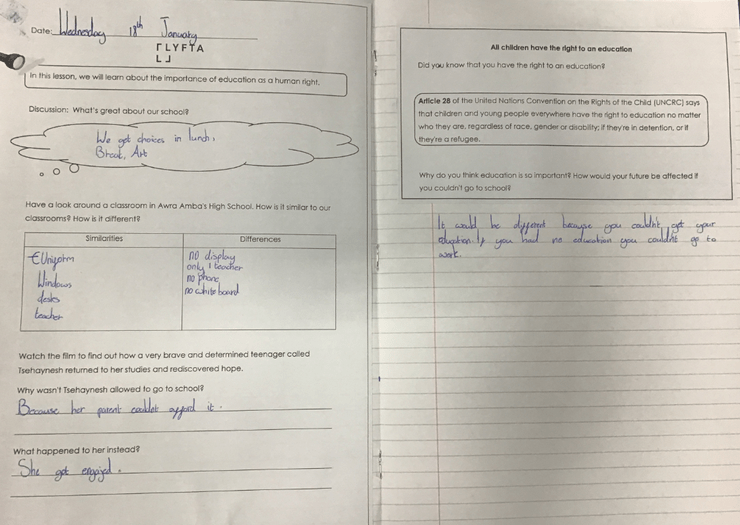 Date: Wednesday 18th January
LYFTA
In this lesson, we will learn about the importance of education as a human right.
Discussion: What's great about our school?
We get choices in lunch,
Break, Art
Have a look around a classroom in Awra Amba's High School. How is it similar to our
classrooms? How is it different?
Similarities
Uniform
Windows
desks
teacher
Differences
no display
only 1 teacher
no phone
no whiteboard
Watch the film to find out how a very brave and determined teenager called
Tsehaynesh returned to her studies and rediscovered hope.
Why wasn't Tsehaynesh allowed to go to school?
Because her parent couldet afford it.
What happened to her instead?
She got engaged.
All children have the right to an education
Did you know that you have the right to an education?
Article 28 of the United Nations Convention on the Rights of the Child (UNCRC) says
that children and young people everywhere have the right to education no matter
who they are, regardless of race, gender or disability; if they're in detention, or if
they're a refugee.
Why do you think education is so important? How would your future be affected if
you couldn't go to school?
It would be different because you couldn't get your
education. If you had no education you couldn't go to
work.